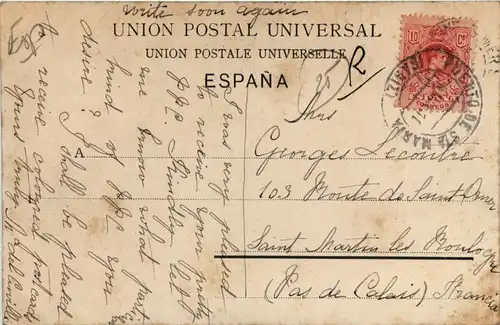 Write soon again
UNION POSTAL UNIVERSAL
UNION POSTALE UNIVERSELLE
ESPAÑA
R
10 Cs
PUERTO DE STA MARIA
A
Georges Lecoutre
103 Route de Saint-Omer
Saint Martin les Boulogne
(Pas de Calais) France
I was very pleased
to receive your pretty
P.P.C. Kindly let
me know what particular
kind of P.P.C. you
desire? I shall be pleased
to receive coloured postcards
Yours truly